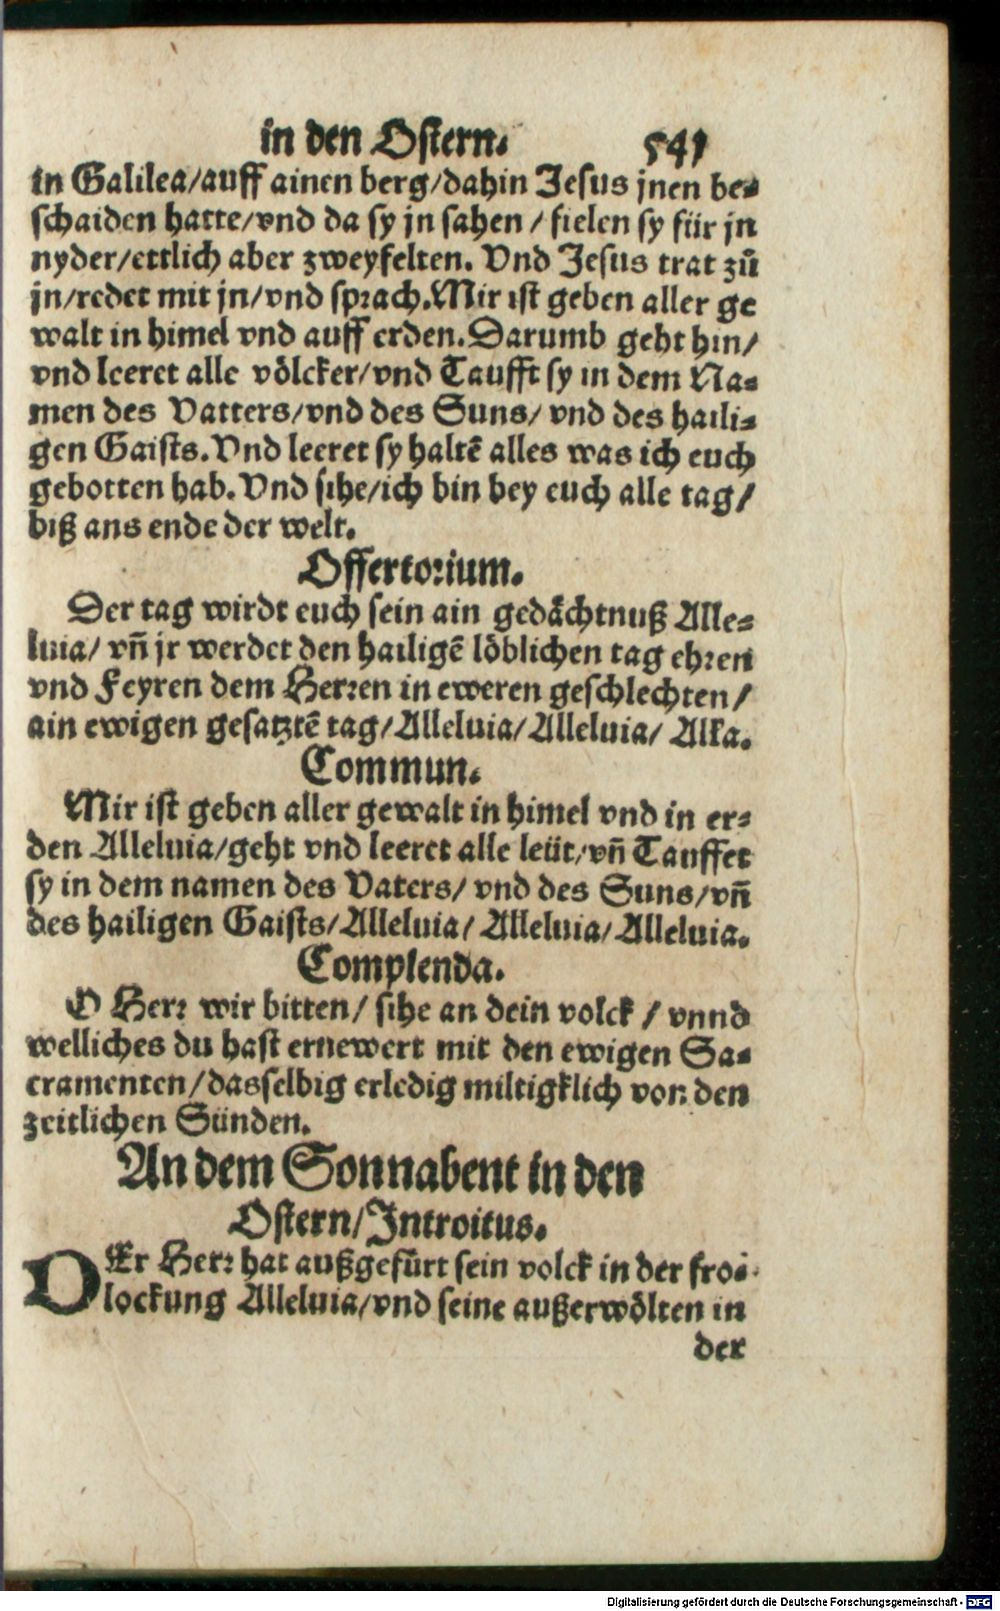 in den Ostern. 541
in Galilea/auff ainen berg/dahin Jesus jnen be⸗
schaiden hatte/vnd da sy jn sahen / fielen sy für jn
nyder/ettlich aber zweyfelten. Vnd Jesus trat zů
jn/redet mit jn/vnd sprach. Mir ist geben aller ge
walt in himel vnd auff erden. Darumb geht hin/
vnd leeret alle völcker/vnd Taufft sy in dem Na⸗
men des Vatters/vnd des Suns/ vnd des haili⸗
gen Gaists. Vnd leeret sy haltē alles was ich euch
gebotten hab. Vnd sihe/ich bin bey euch alle tag/
biß ans ende der welt.
Offertorium.
Der tag wirdt euch sein ain gedächtnuß Alle⸗
luia/ vñ jr werdet den hailigē löblichen tag ehren
vnd Feyren dem Herren in eweren geschlechten/
ain ewigen gesatztē tag/Alleluia/Alleluia/ Alla.
Commun.
Mir ist geben aller gewalt in himel vnd in er⸗
den Alleluia/geht vnd leeret alle leüt/vñ Tauffet
sy in dem namen des Vaters/ vnd des Suns/vñ
des hailigen Gaists/Alleluia/ Alleluia/Alleluia.
Complenda.
O Herr wir bitten/ sihe an dein volck / vnnd
welliches du hast ernewert mit den ewigen Sa⸗
cramenten/dasselbig erledig miltigklich von den
zeitlichen Sünden.
An dem Sonnabent in den
Ostern/Introitus.
DEr Herr hat außgefürt sein volck in der fro⸗
lockung Alleluia/vnd seine außerwölten in
der
Digitalisierung gefördert durch die Deutsche Forschungsgemeinschaft - DFG